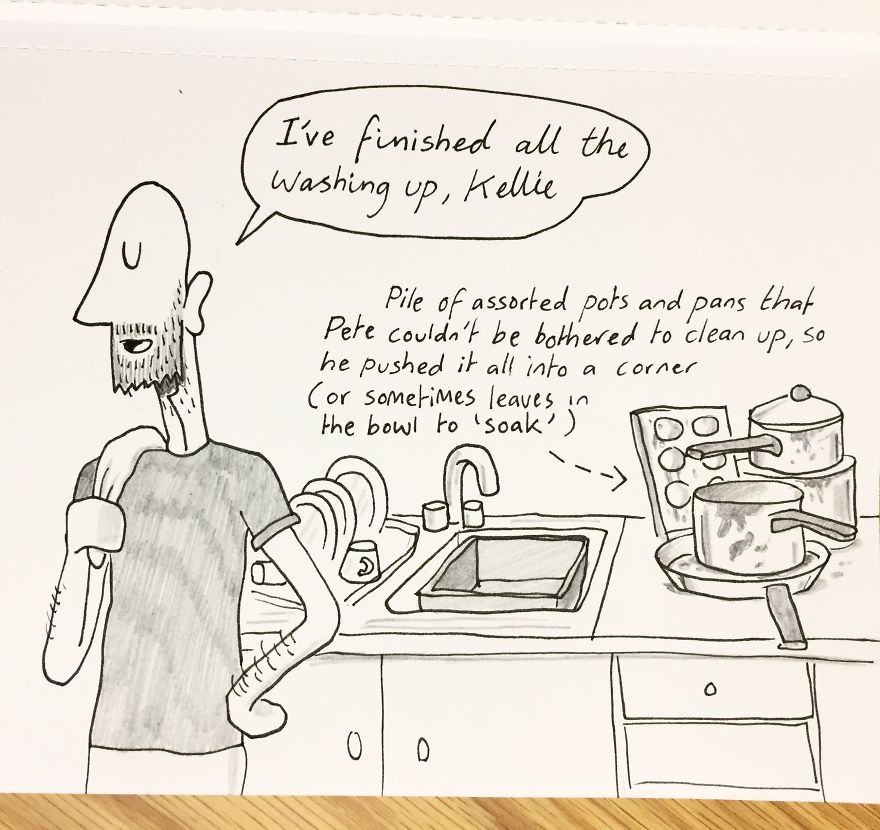 I've finished all the
washing up, Kellie
Pile of assorted pots and pans that
Pete couldn't be bothered to clean up, so
he pushed it all into a corner
(or sometimes leaves in
the bowl to 'soak')